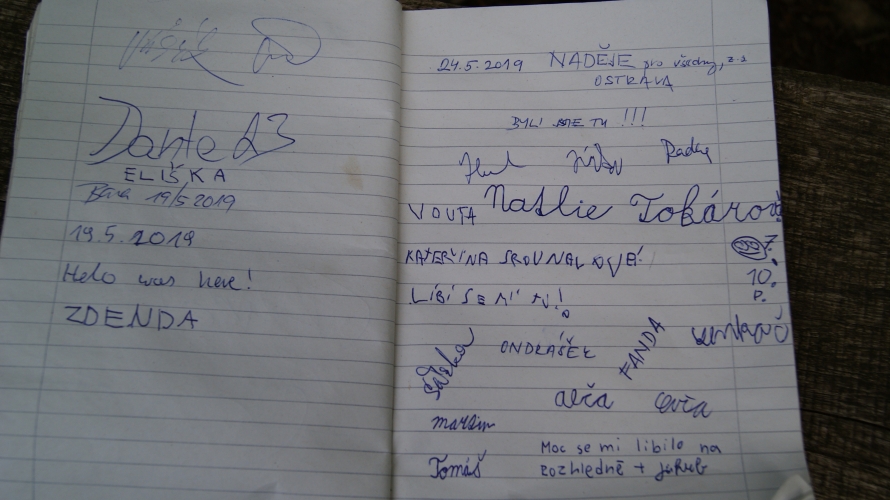 Dante 23
ELIŠKA
Bára 19/5 2019
19.5.2019
Helo was here!
ZDENDA
24.5.2019 NADĚJE pro všechny, z.s
OSTRAVA
BYLI JSME TU !!!
Radka
VOJTA Natlie Tokárová
KATEŘINA SROVNALOVÁ!
10.
P.
LÍBÍ SE MÍ TU!
ONDRÁŠEK
FANDA
Sárka
alča
martin
Tomáš
Moc se mi libilo na
rozhledně + Jakub